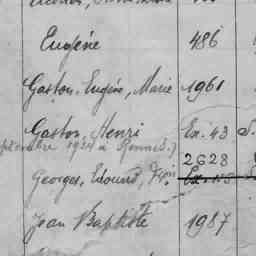 Eugène 486
Gaston, Eugène, Marie 1961
Gaston, Henri Ex. 43
1924 à Rennes.)
2628
Georges, Edouard,
Jean Baptiste 1987